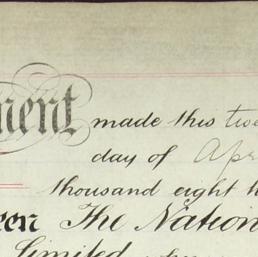 ment made this twe
day of Apr
thousand eight h
een The Nation
Limited